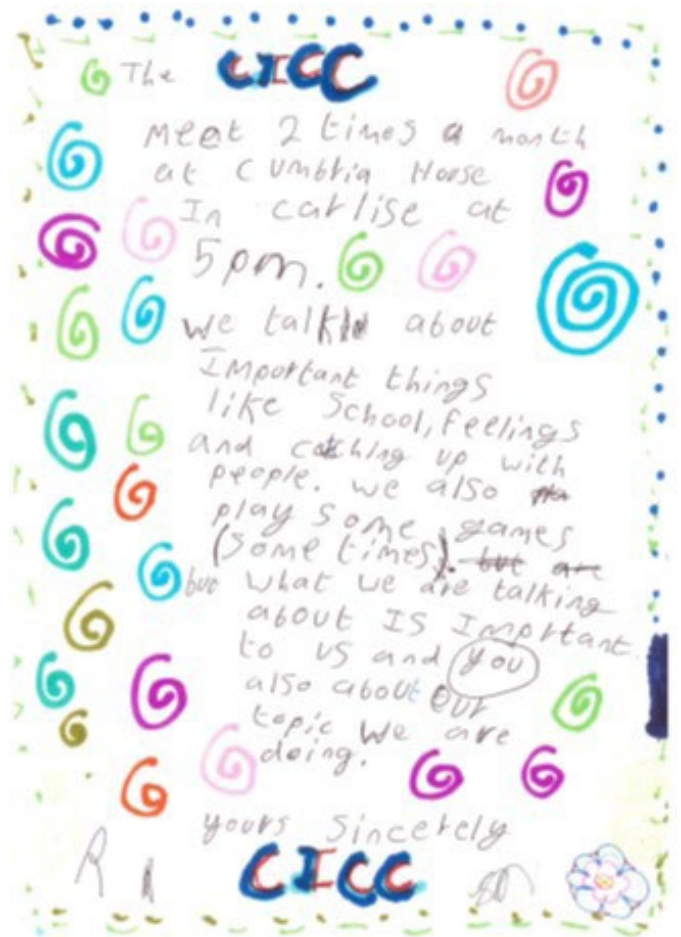 The CICC
Meet 2 times a month
at Cumbria House
In carlise at
5pm.
we talk about
Important things
like School, feelings
and catching up with
people. we also
play some games
(some times). but are
but what we are talking
about IS Imprtant
to us and you
also about our
topic we are
doing.
yours Sincerely
CICC